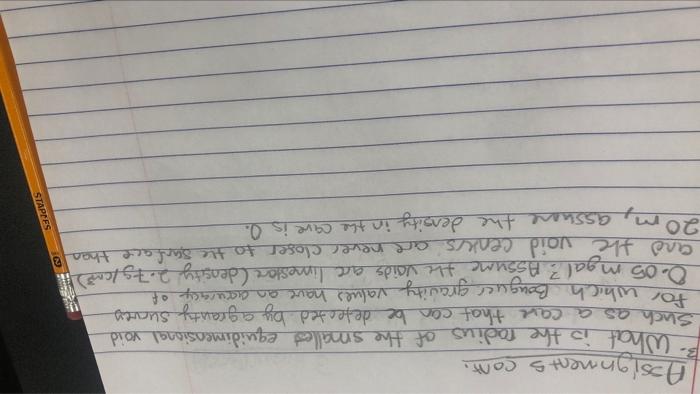 Assignments cont.
3. What is the radius of the smallest equidimensional void
such as a cave that can be detected by a gravity survey
for which Bouguer gravity values have an accuracy of
0.05 mgal? Assume the voids are limestone (density 2.7g/cm³)
and the void centers are never closer to the surface than
20 m, assume the density in the cave is 0.
STAPLES
2